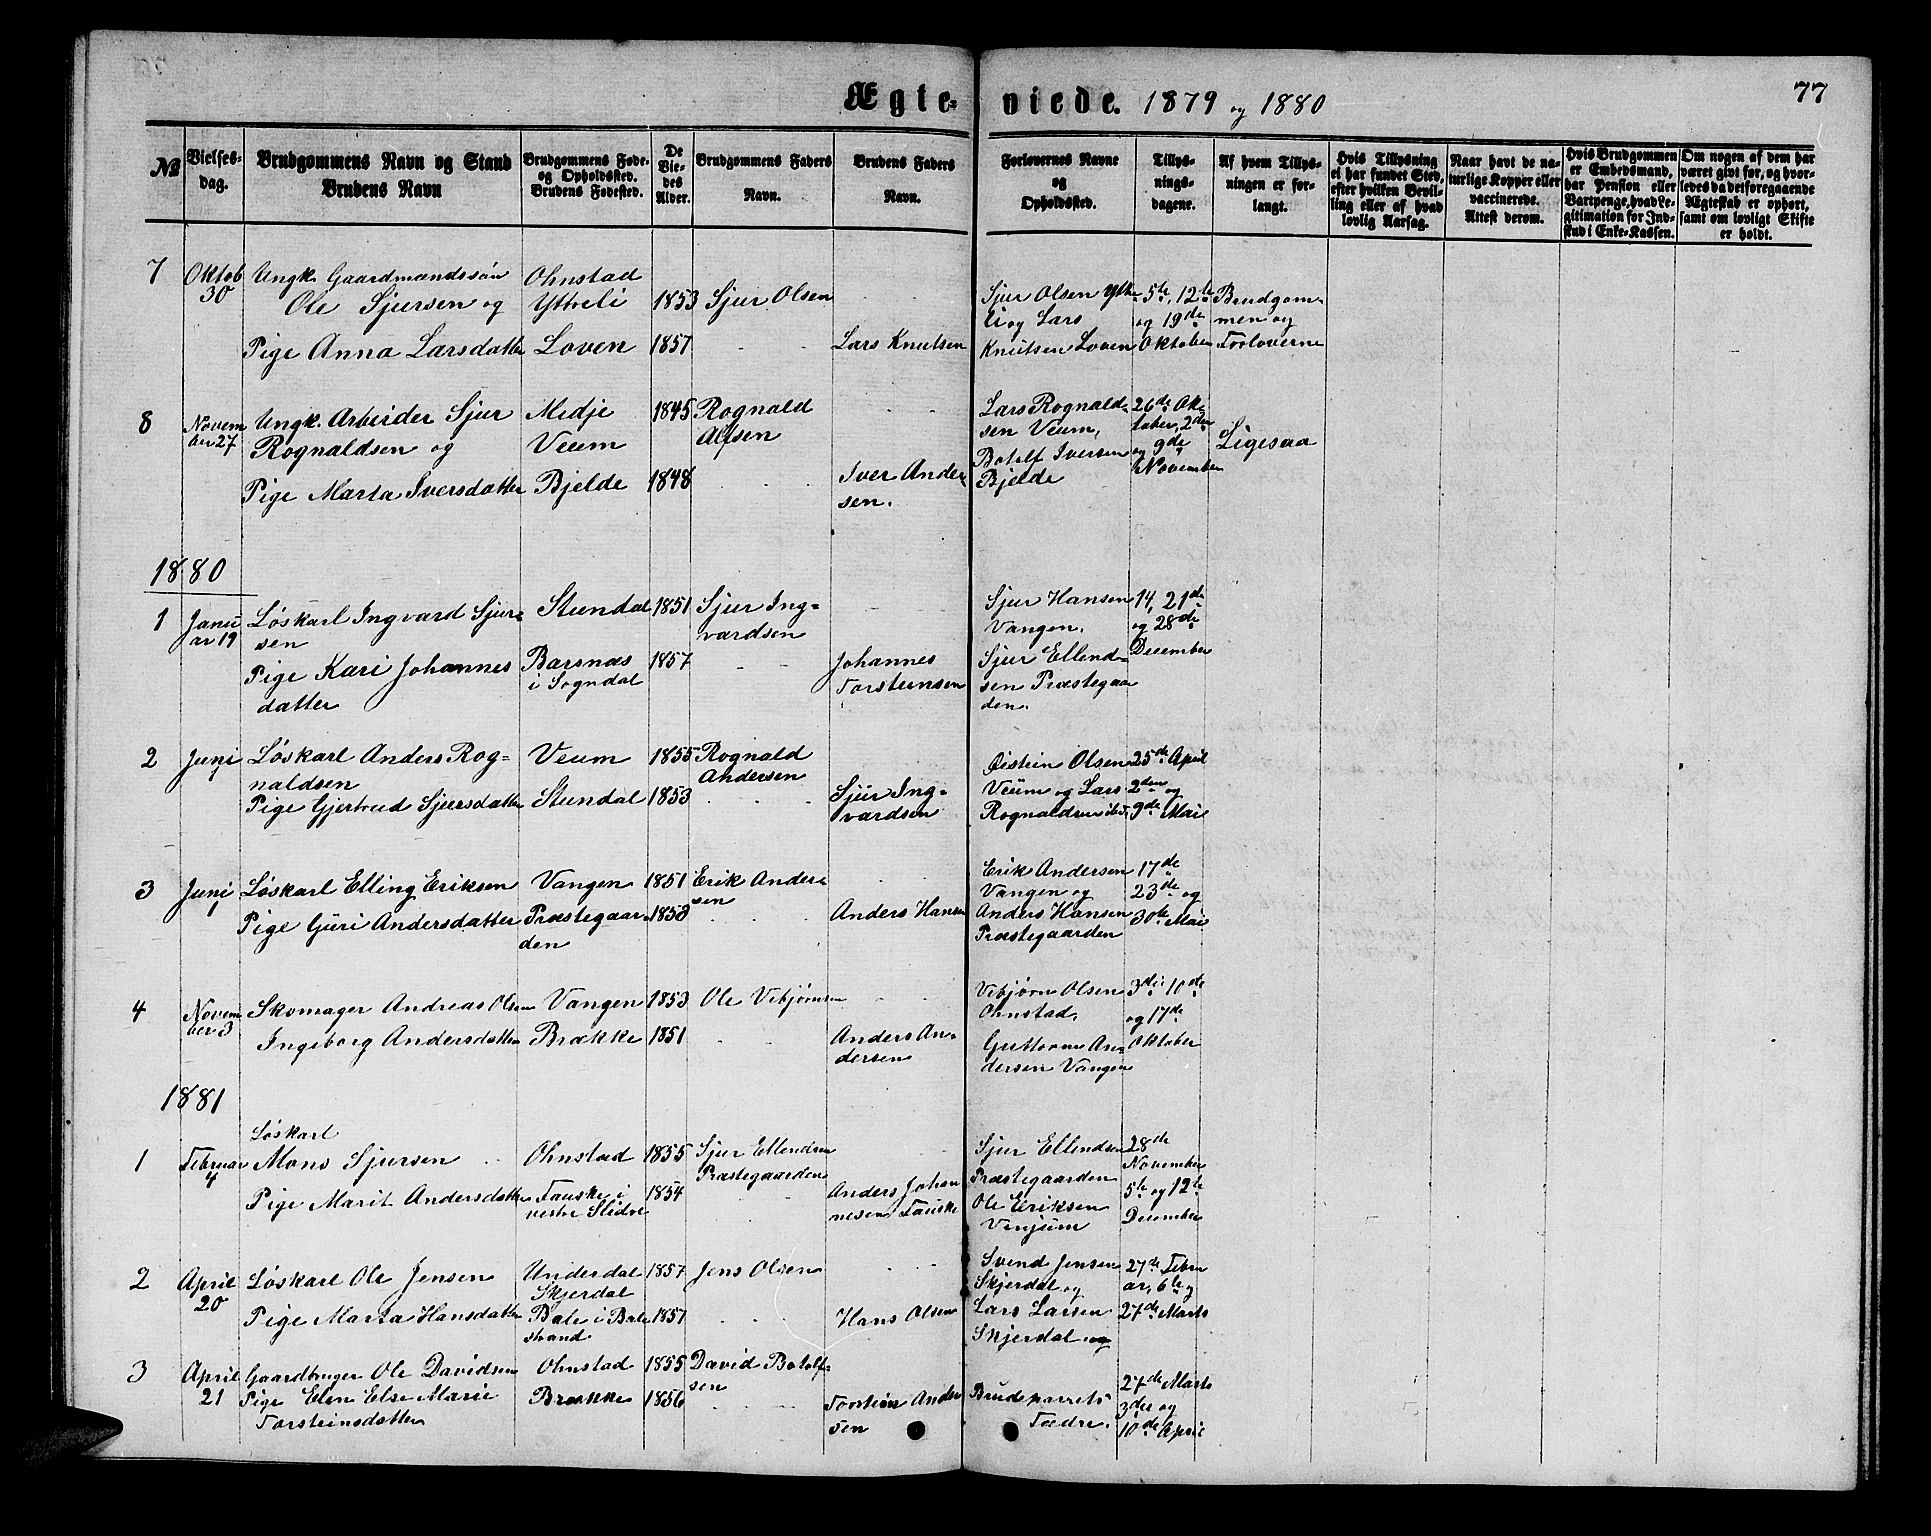 77
Ægteviede. 1879 og 1880
№
Vielses-dag.
Brudgommens Navn og Stand
Brudens Navn
Brudgommens Føde- og Opholdssted.
Brudens Fødested.
De Viedes Alder.
Brudgommens Faders Navn.
Brudens Faders Navn.
Forlovernes Navne og Opholdssted.
Tillysningsdagene.
Af hvem Tillysningen er forlangt.
Hvis Tillysning ei har fundet Sted, efter hvilken Bevilling eller af hvad lovlig Aarsag.
Naar havt de naturlige Kopper eller vaccinerede. Attest derom.
Hvis Brudgommen er Embedsmand, har Pension eller Vartpenge, hvad Legitimation for Indskud i Enke-Kassen.
Om nogen af dem har været gift før, og hvorledes da det foregaaende Ægteskab er ophørt, samt om lovligt Skifte er holdt.
7 Oktob 30 Ungk. Gaardmandssøn Ohnstad
Ole Sjursen og Ytreli 1853 Sjur Olsen
Pige Anna Larsdatter Loven 1857 Lars Knutsen
Sjur Olsen Ytre
li og Lars
Knutsen Loven
5te, 12te
og 19de
Oktober
Brudgom
men og
Forloverne
8 Novem
ber 27
Ungk. Arbeider Sjur Midje 1845 Rognald
Rognaldsen og Veum Alfsen
Pige Marta Iversdatter Bjelde 1848 Iver Ander
sen.
Lars Rognald-
sen Veum,
Botolf Iversen
Bjelde
26de Ok-
tober, 2den
og 9de
November
Ligesaa
1880
1 Janu
ar 19
Løskarl Ingvard Sjur- Stundal 1851 Sjur Ing-
sen vardsen
Pige Kari Johannes Barsnæs 1857 Johannes
datter i Sogndal Torsteinsen
Sjur Hansen
Vangen.
Sjur Ellend-
sen Præstegaar
den.
14, 21de
og 28de
December
2 Juni Løskarl Anders Rog- Veum 1855 Rognald
naldsen Andersen
Pige Gjertrud Sjursdatter Stundal 1853 Sjur Ing-
vardsen
Øistein Olsen
Veum og Lars
Rognaldsen ibd.
25de April
2den og
9de Mai
3 Juni Løskarl Elling Eriksen Vangen 1851 Erik Ander-
sen
Pige Guri Andersdatter Præstegaar 1853 Anders Hansen
den
Erik Andersen
Vangen og
Anders Hansen
Præstegaarden
17de
23de og
30te Mai
4 Novem
ber 3
Skomager Andreas Olsen Vangen 1853 Ole Vibjørnsen
Ingeborg Andersdatter Brække 1851 Anders An-
dersen
Vibjørn Olsen
Ohnstad,
Guttorm An-
dersen Vangen
3die 10de
og 17de
Oktober
1881
Løskarl
1 Februar
4
Mons Sjursen Ohnstad 1855 Sjur Ellendsen
Præstegaarden
Pige Marit Andersdatter Fauske i 1854 Anders Johan
vestre Slidre nesen Fauske
Sjur Ellendsen
Præstegaarden
Ole Eriksen
Vinjum
28de
November
5te og 12te
December
2 April
20
Løskarl Ole Jensen Underdal 1857 Jens Olsen
Skjerdal
Pige Marta Hansdatter Bale i Bale 1857 Hans Olsen
strand
Svend Jensen
Skjerdal og
Lars Larsen
Skjerdal og
27de Febru
ar, 6te og
27de Marts
3 April
21
Gaardbruger Ole Davidsen Ohnstad 1855 David Botolf-
sen
Pige Elen Else Marie Brække 1856 Torstein Ander
Torsteinsdatter sen
Brudeparrets
Fædre.
27de Marts
3die og
10de April